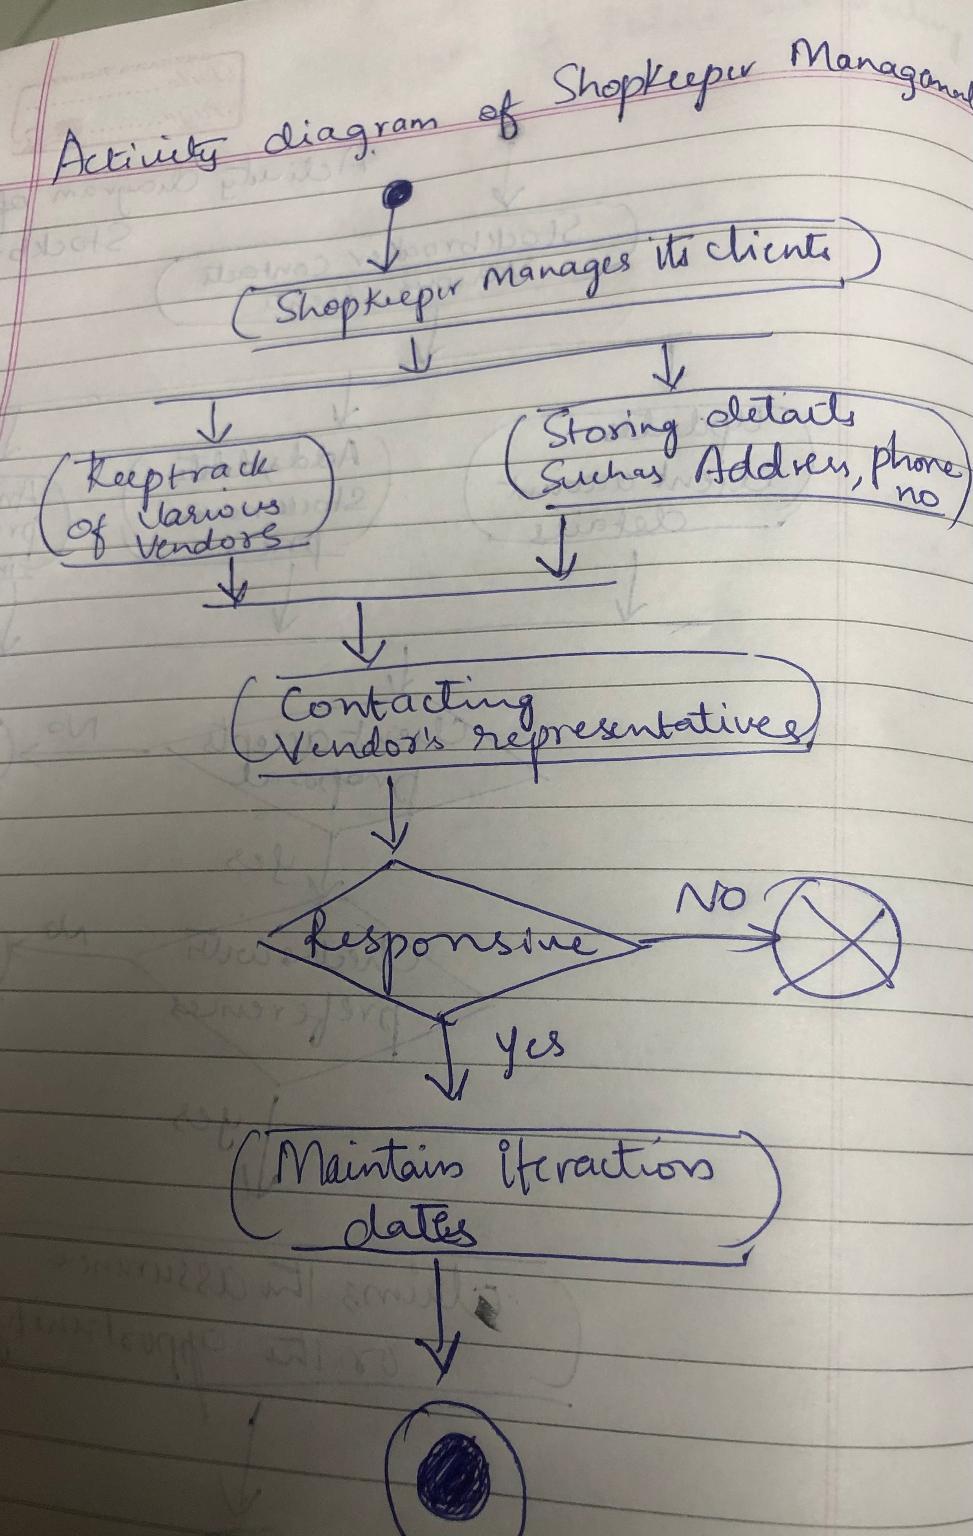 Activity diagram of Shopkeeper Managament
Shopkeeper Manages its clients
Keeptrack
of Various
Vendors
Storing details
Suchas Address, phone
no
Contacting
Vendor's representatives
Responsive
NO
yes
Maintain iteractions
dates